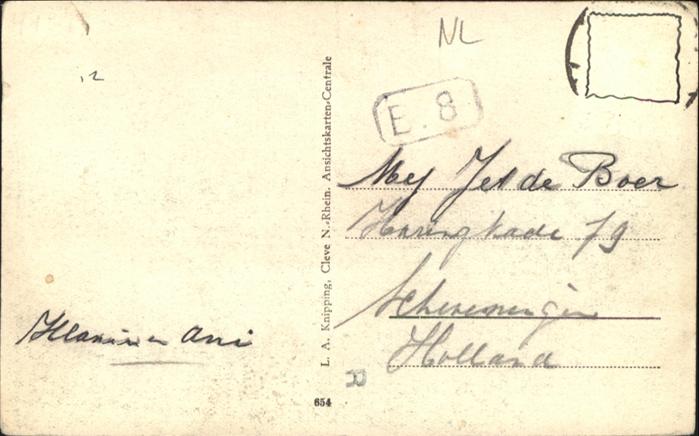 NL
E. 8
Mej Jet de Boer
Haringkade 79
Scheveningen
Holland
Ani
L. A. Knipping, Cleve N.-Rhein. Ansichtskarten-Centrale
R
654